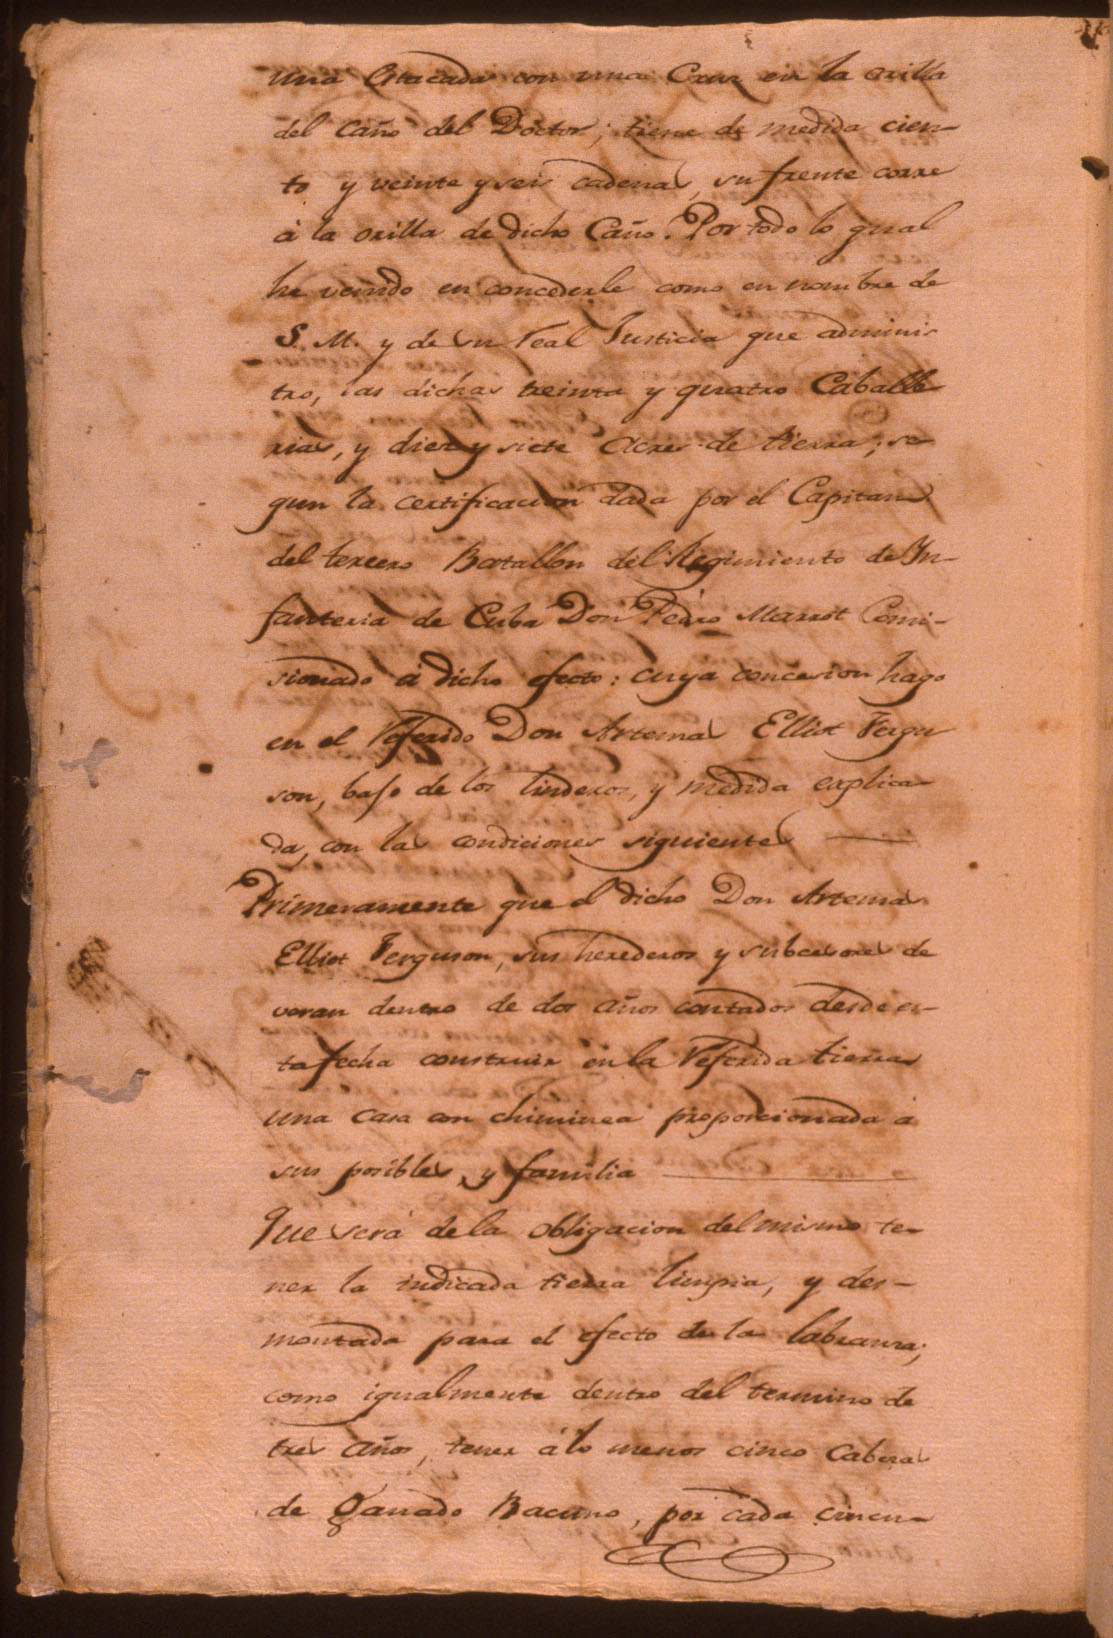 una Estacada con una Cruz en la orilla
del Caño del Doctor; tiene de medida cien-
to y veinte y seis cadenas, su frente corre
à la orilla de dicho Caño. Por todo lo qual
he venido en concederle como en nombre de
S. M. y de su Real Justicia que adminis
tro, las dichas treinta y quatro Caballe
rias, y diez y siete Acres de tierra; se-
gun la certificacion dada por el Capitan
del tercero Batallon del Regimiento de In-
fanteria de Cuba Don Pedro Marrot Comi-
sionado à dicho efecto: cuya concesion hago
en el Referido Don Artemas Elliot Fergu
son, bajo de los linderos, y medida explica-
da, con las condiciones siguientes
Primeramente que el dicho Don Artemas
Elliot Ferguson, sus herederos y subcesores de
veran dentro de dos años contados desde es-
ta fecha construir en la Referida tierra
una casa con chiminea proporcionada à
sus posibles, y familia
Que será de la obligacion del mismo te-
ner la indicada tierra limpia, y des-
montada para el efecto de la labranza;
como igualmente dentro del termino de
tres años, tener á lo menos cinco Cabezas
de Ganado Bacuno, por cada cincu-